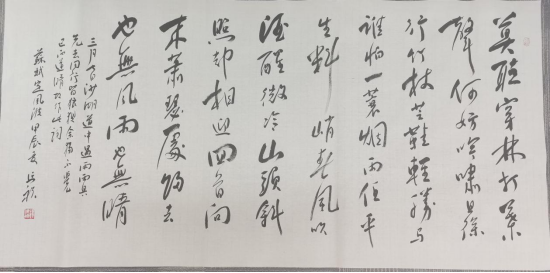 莫聽穿林打葉
聲何妨吟嘯且徐
行竹杖芒鞋輕勝馬
誰怕一蓑烟雨任平
生料峭春風吹
酒醒微冷山頭斜
照却相迎回首向
来蕭瑟處歸去
也無風雨也無晴
三月七日沙湖道中遇雨雨具
先去同行皆狼狽余獨不覺
已而遂晴故作此詞
蘇軾定風波甲辰夏